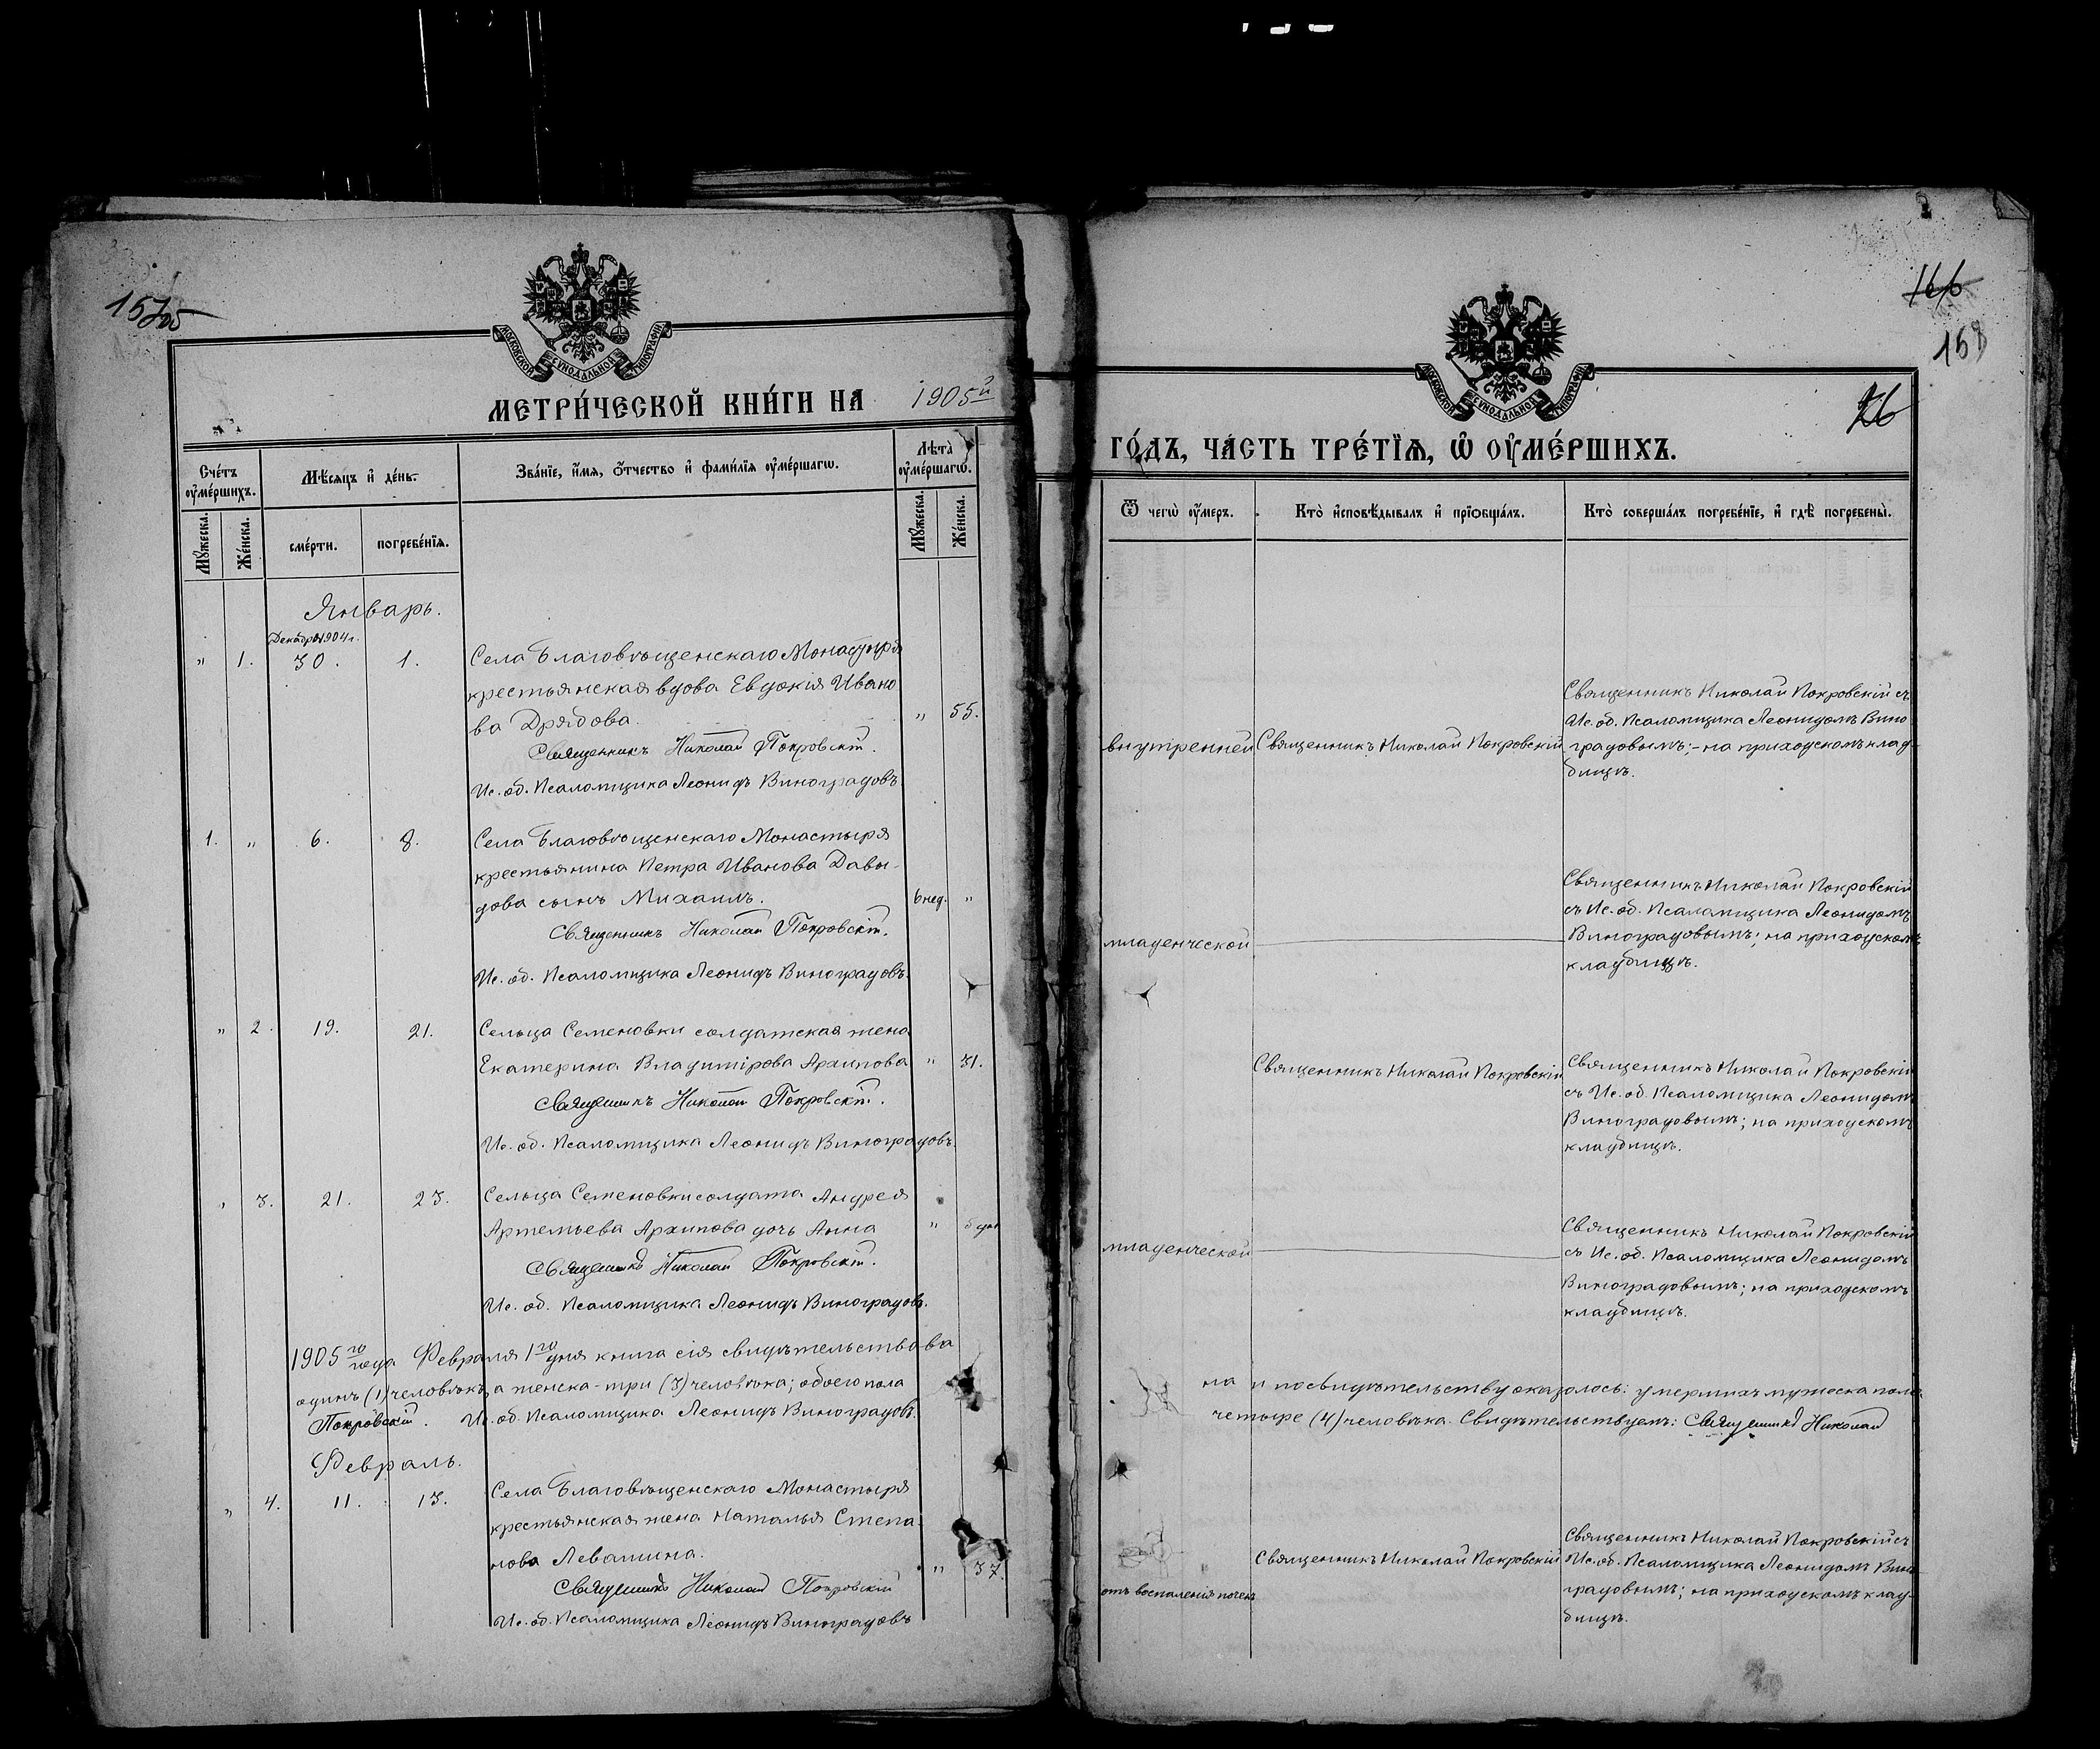 157об
166
158
26
МОСКОВСКОЙ СѴНОДАЛЬНОЙ ТИПОГРАФІИ
МОСКОВСКОЙ СѴНОДАЛЬНОЙ ТИПОГРАФІИ
МЕТРИ́ЧЕСКОЙ КНИ́ГИ НА 1905й
ГО́ДЪ, ЧА́СТЬ ТРЕ́ТЇѦ, Ѡ҆ ОУ҆МЕ́РШИХЪ.
Сче́тъ оу҆ме́ршихъ.
Мꙋ́жеска.
Же́нска.
Мѣ́сяцъ и҆ де́нь.
сме́рти.
погребе́нїя.
Зва́нїе, и҆́мя, ѻ҆́тчество и҆ фами́лїя оу҆ме́ршагѡ.
Лѣ́та оу҆ме́ршагѡ.
Мꙋ́жеска.
Же́нска.
Ѿ чегѡ̀ оу҆́меръ.
Кто̀ и҆сповѣ́дывалъ и҆ прїѡбща́лъ.
Кто̀ соверша́лъ погребе́нїе, и҆ гдѣ̀ погребены̀.
Январь.
Декабря 1904 г.
" 1. 30. 1. Села Благовѣщенскаго Монастыря
крестьянская вдова Евдокія Ивано
ва Дрябова. " 55.
Священникъ Николай Покровскій.
Ис. об. Псаломщика Леонидъ Виноградовъ
внутренней
Священникъ Николай Покровскій
Священникъ Николай Покровскій съ
Ис. об. Псаломщика Леонидомъ Вино
градовымъ; - на приходскомъ клад-
бищѣ.
1. " 6. 8. Села Благовѣщенскаго Монастыря
крестьянина Петра Иванова Давы-
дова сынъ Михаилъ. 6 нед. "
Священникъ Николай Покровскій.
Ис. об. Псаломщика Леонидъ Виноградовъ.
младенческой
Священникъ Николай Покровскій
съ Ис. об. Псаломщика Леонидомъ
Виноградовымъ; на приходскомъ
кладбищѣ.
" 2. 19. 21. Сельца Семеновки солдатская жена
Екатерина Владимірова Архипова " 31.
Священникъ Николай Покровскій.
Ис. об. Псаломщика Леонидъ Виноградовъ.
Священникъ Николай Покровскій
Священникъ Николай Покровскій
съ Ис. об. Псаломщика Леонидомъ
Виноградовымъ; на приходскомъ
кладбищѣ.
" 3. 21. 23. Сельца Семеновки солдата Андрея
Артемьева Архипова дочь Анна "
Священникъ Николай Покровскій.
Ис. об. Псаломщика Леонидъ Виноградовъ.
младенческой
Священникъ Николай Покровскій
съ Ис. об. Псаломщика Леонидомъ
Виноградовымъ; на приходскомъ
кладбищѣ.
1905го года Февраля 1го дня книга сія свидѣтельствова
на и по свидѣтельству оказалось: умершихъ мужеска пола
одинъ (1) человѣкъ, а женска - три (3) человѣка; обоего пола
четыре (4) человѣка. Свидѣтельствуемъ: Священникъ Николай
Покровскій. Ис. об. Псаломщика Леонидъ Виноградовъ.
Февраль.
" 4. 11. 13. Села Благовѣщенскаго Монастыря
крестьянская жена Наталья Степа-
нова Левашина. " 37.
Священникъ Николай Покровскій
Ис. об. Псаломщика Леонидъ Виноградовъ
отъ воспаленія почекъ
Священникъ Николай Покровскій
Священникъ Николай Покровскій съ
Ис. об. Псаломщика Леонидомъ Вино
градовымъ; на приходскомъ клад-
бищѣ.